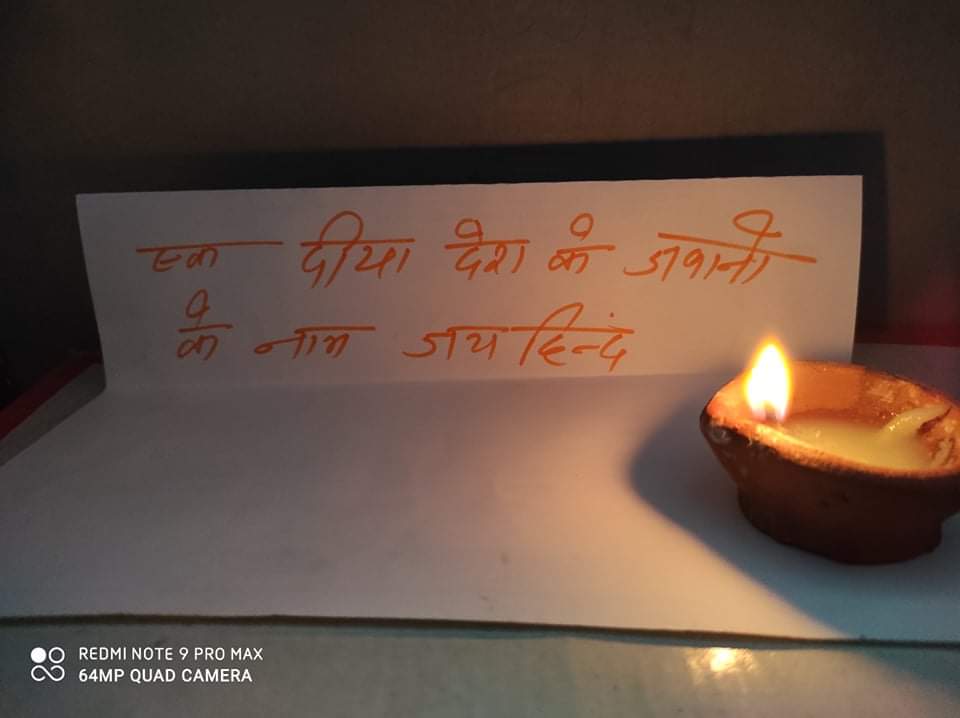 एक दीया देश के जवानो
के नाम जय हिन्दं
REDMI NOTE 9 PRO MAX
64MP QUAD CAMERA